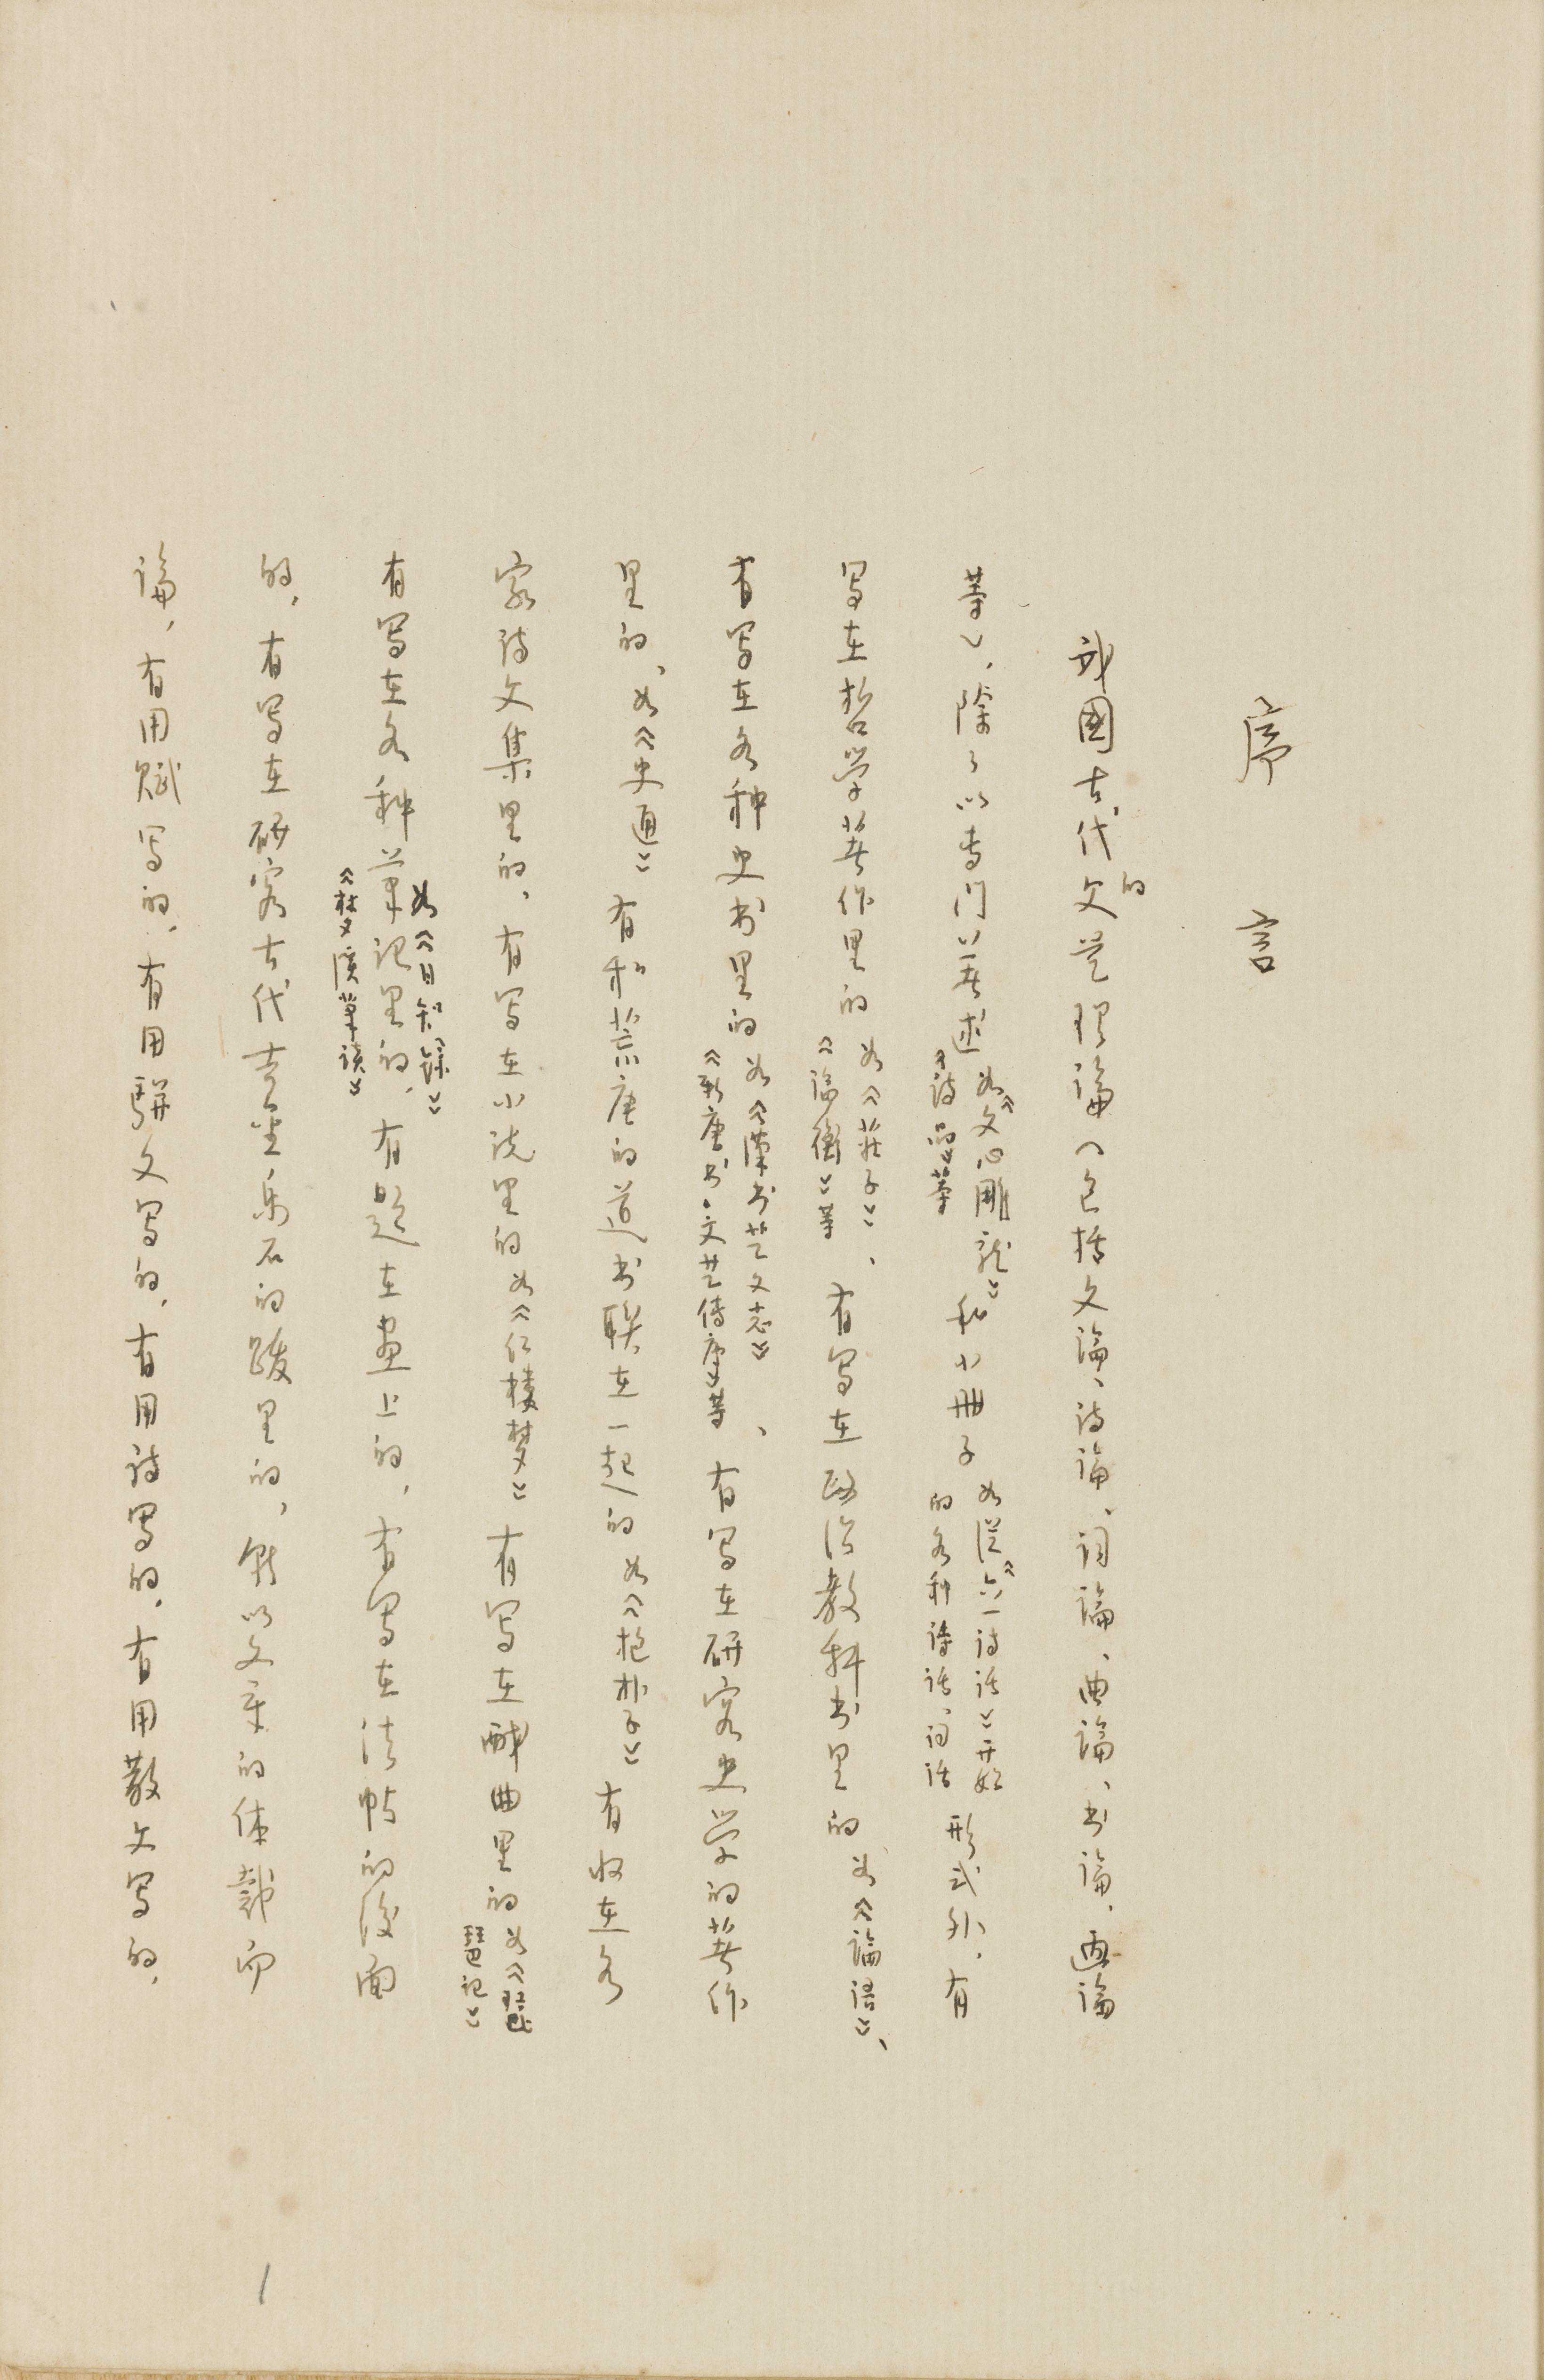 序言
我國古代的文艺理論（包括文論、诗論、词論、曲論、书論、画論
等），除了以专门著述如《文心雕龍》《诗品》等和小册子如從《六一诗话》开始的各种诗话、词话形式外，有
写在哲学著作里的如《莊子》、《論衡》等、有写在政治教科书里的如《論语》、
有写在各种史书里的如《漢书艺文志》《新唐书·文艺传序》等、有写在研究史学的著作
里的，如《史通》有和荒唐的道书联在一起的如《抱朴子》有收在各
家诗文集里的，有写在小说里的如《红楼梦》有写在戏曲里的如《琵琶记》
有写在各种筆记里的，如《日知録》《梦溪筆谈》有题在画上的，有写在法帖的後面
的，有写在研究古代吉金乐石的跋里的，就以文章的体裁而
論，有用赋写的，有用骈文写的，有用诗写的，有用散文写的，
1